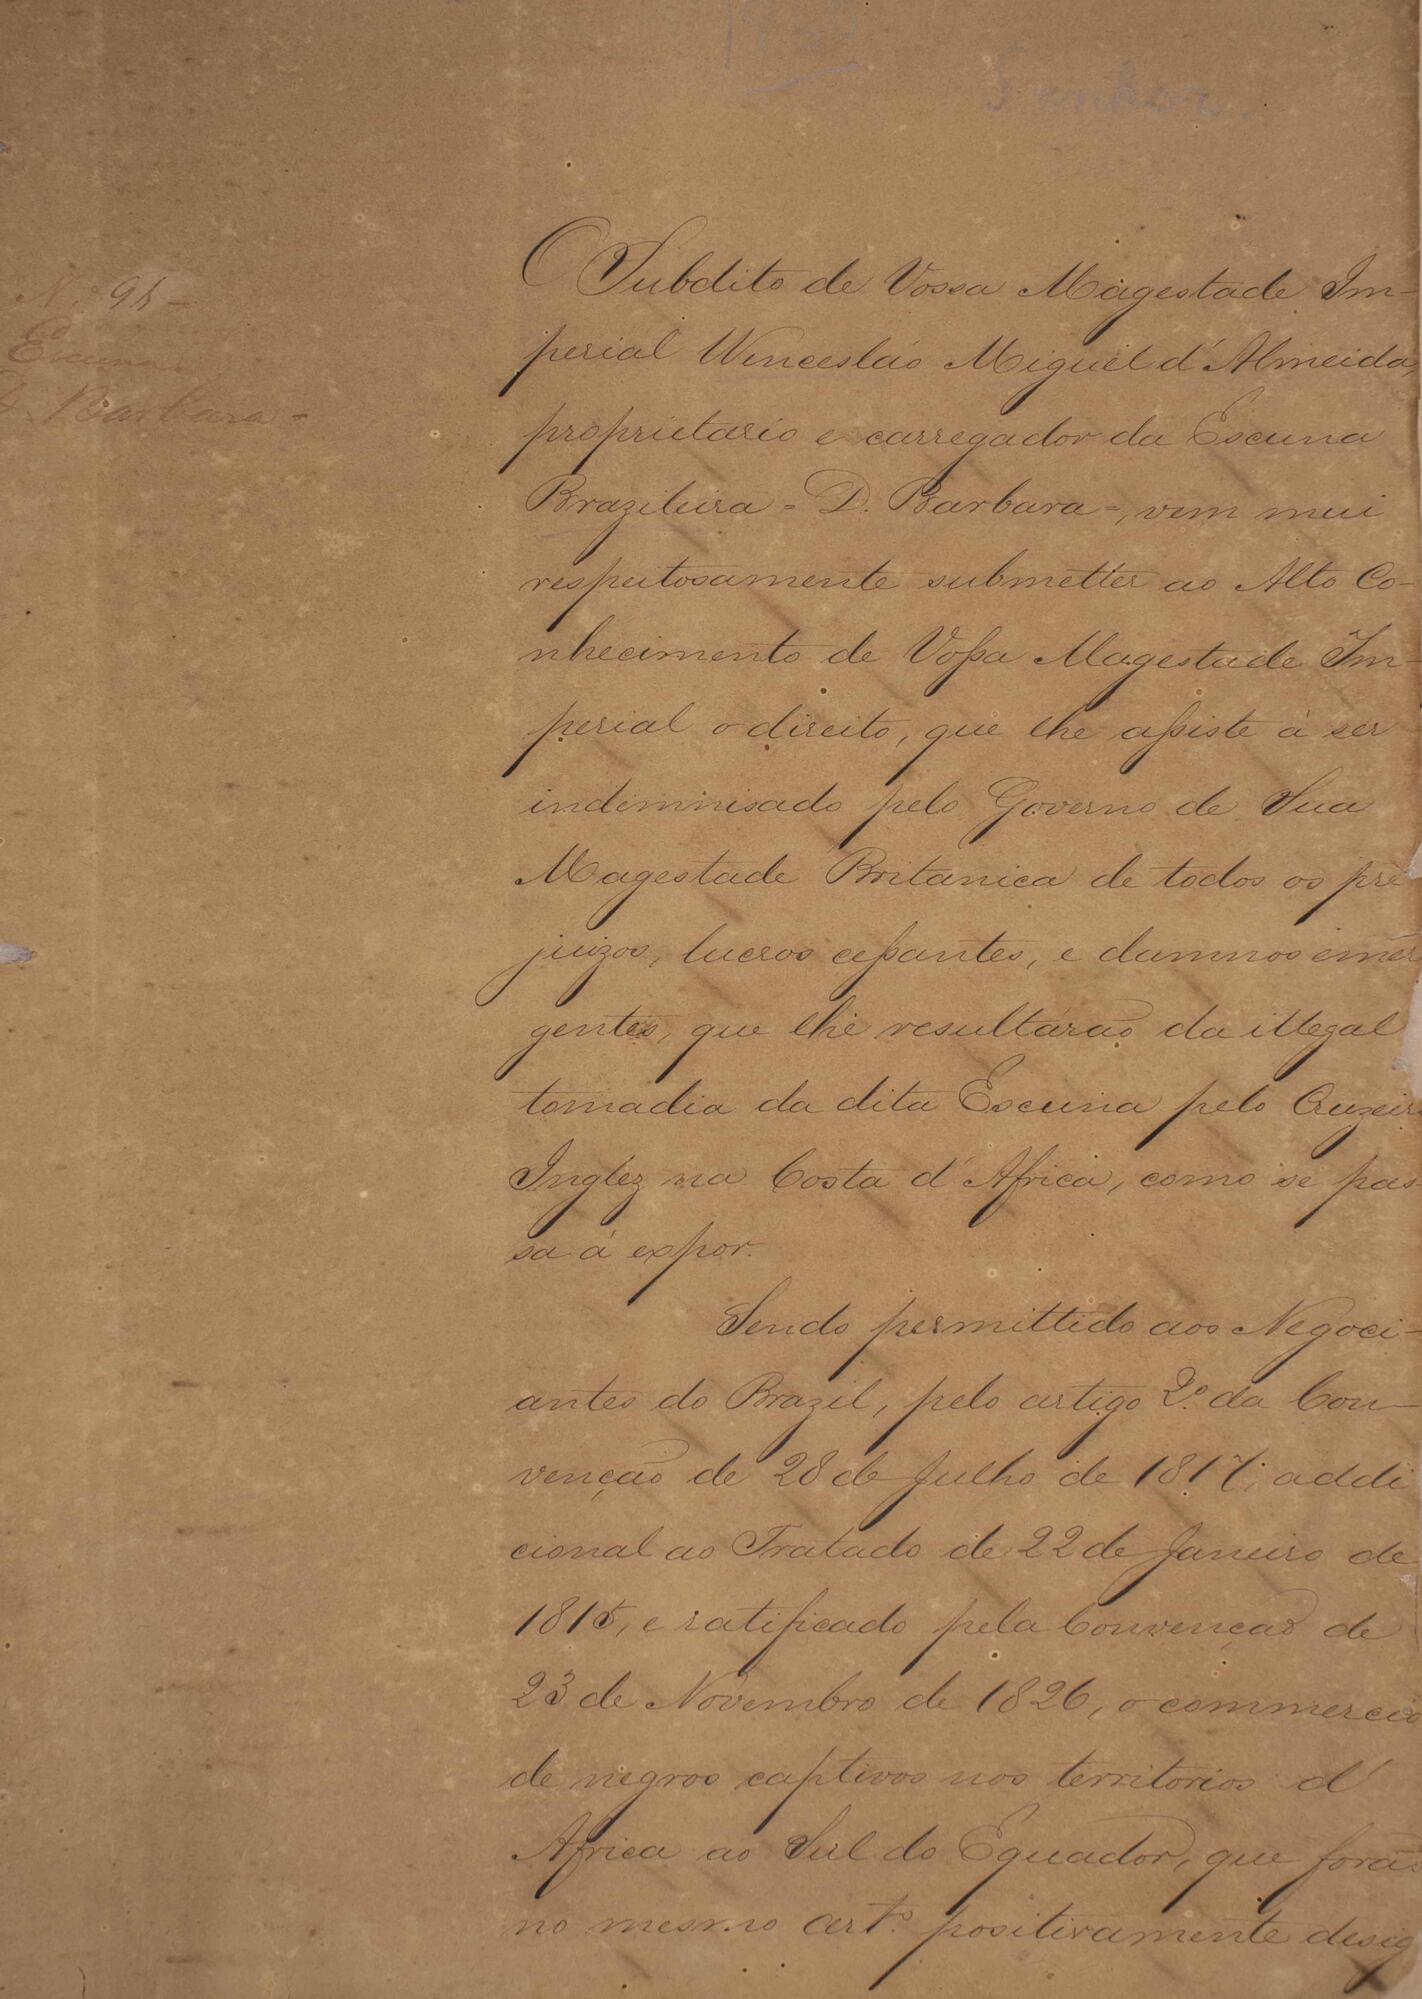 Senhor.
N.º 95-
Escuna
D. Barbara-
O Subdito de Vossa Magestade Im-
perial Wencesláo Miguel d'Almeida,
proprietario e carregador da Escuna
Brazileira = D. Barbara =, vem mui
respeitosamente submetter ao Alto Co-
nhecimento de Voſsa Magestade Im-
perial o direito, que lhe aſsiste á ser
indemnisado pelo Governo de Sua
Magestade Britanica de todos os pre
juizos, lucros ceſsantes, e damnos emer
gentes, que lhe resultárão da illegal
tomadia da dita Escuna pelo Cruzeiro
Inglez na Costa d'Africa, como se pas-
sa á expor.
Sendo permittido aos Negoci-
antes do Brazil, pelo artigo 2.º da Con-
venção de 28 de Julho de 1817, addi
cional ao Tratado de 22 de Janeiro de
1815, e ratificado pela Convenção de
23 de Novembro de 1826, o commercio
de negros captivos nos territorios d'
Africa ao Sul do Equador, que forão
no mesmo art.º positivamente desig